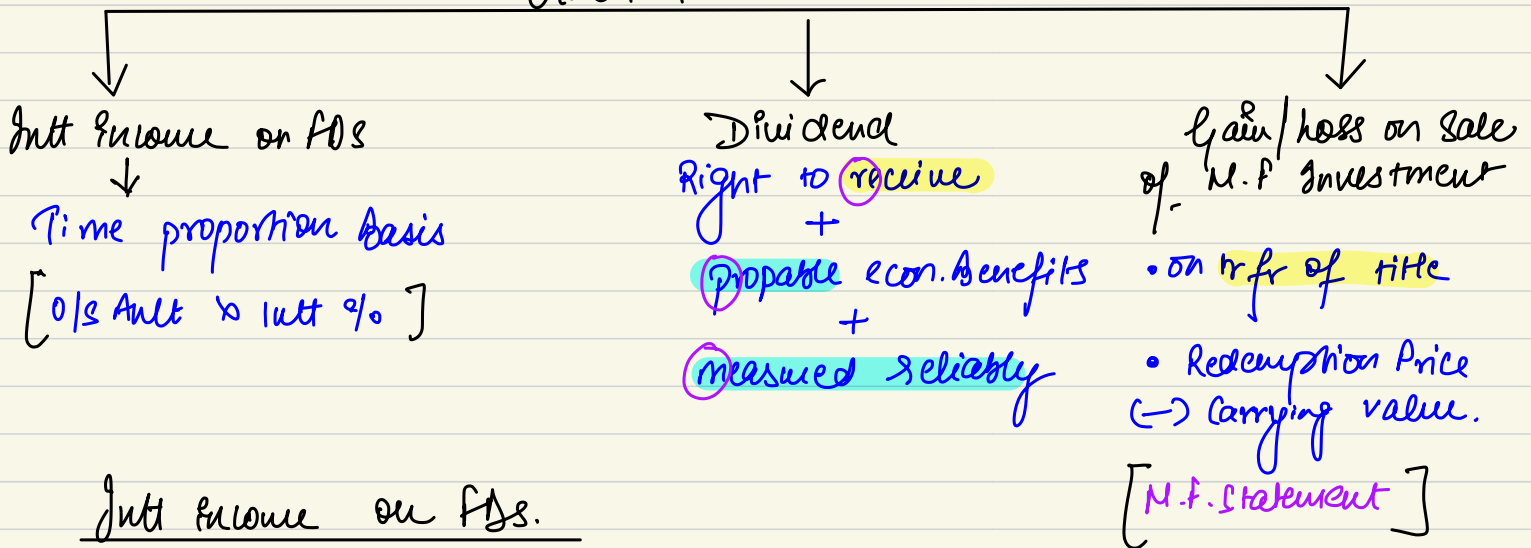 Intt Income on FDs
Time proportion Basis
[O/S Amt x Intt %]
Dividend
Right to receive
+
propable econ. Benefits
+
measured reliably
Gain/Loss on Sale
of M.F Investment
• on trfr of title
• Redemption Price
(-) Carrying value.
[M.F. Statement]
Intt Income on FDs.